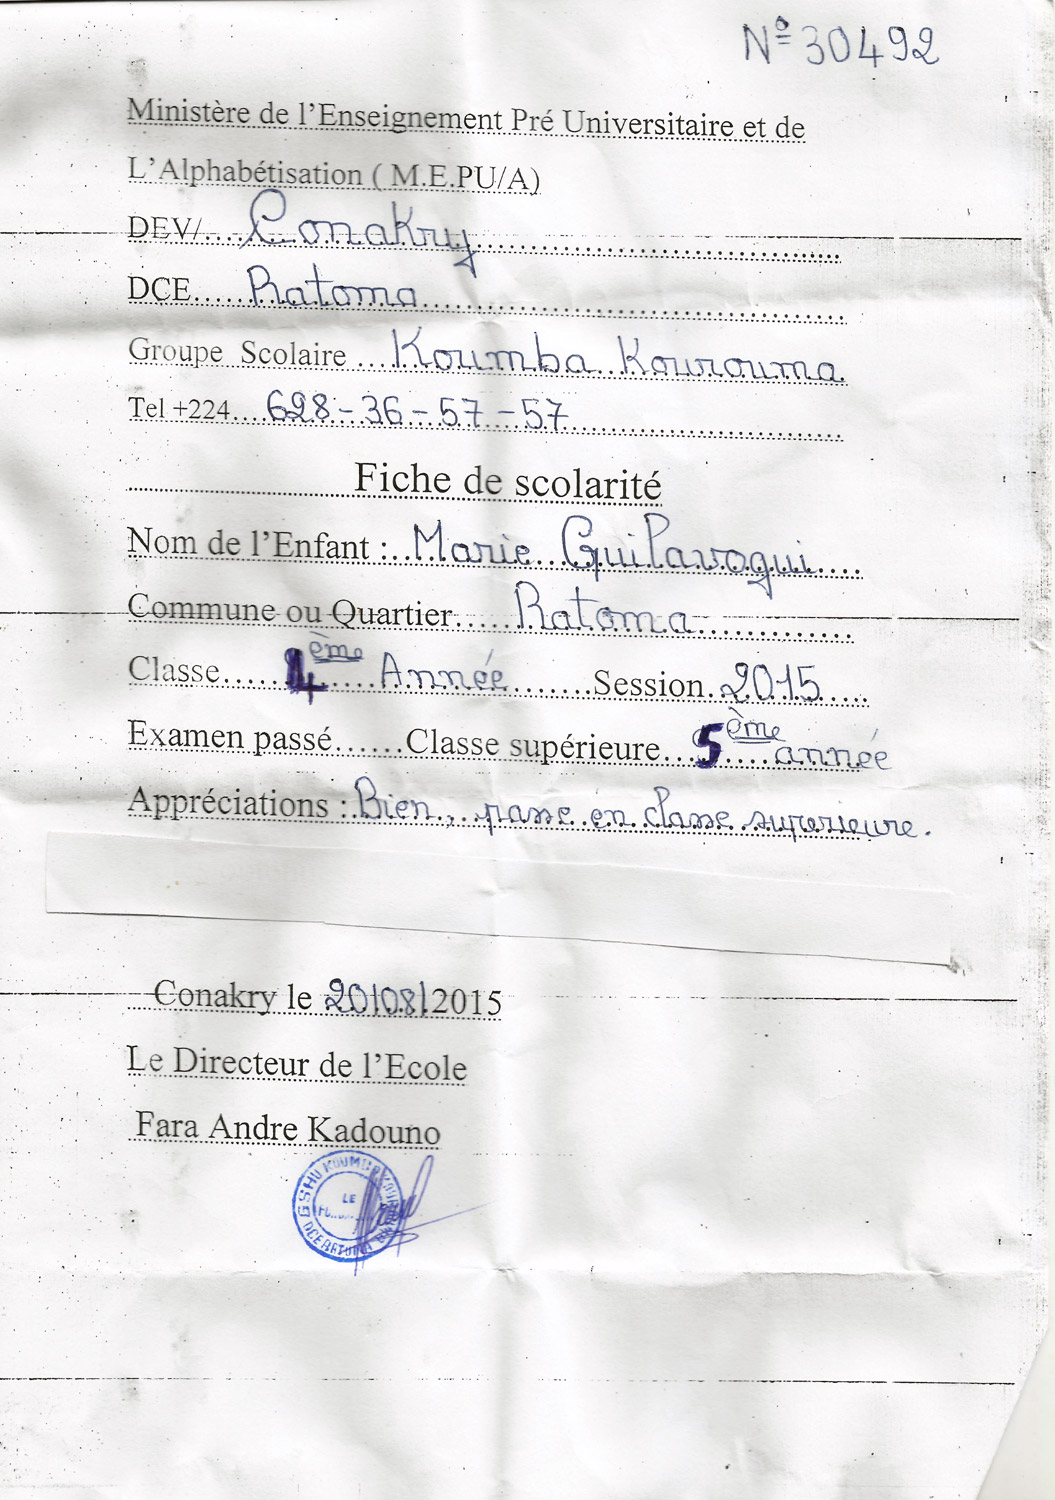 Nº 30492
Ministère de l'Enseignement Pré Universitaire et de
L'Alphabétisation ( M.E.PU/A)
DEV/....Conakry
DCE......Ratoma
Groupe Scolaire ...Koumba Kourouma
Tel +224....628-36-57-57
Fiche de scolarité
Nom de l'Enfant :..Marie Guilavogui....
Commune ou Quartier.....Ratoma
Classe.....4ème Année........Session.2015.....
Examen passé......Classe supérieure....5ème année
Appréciations : Bien, passe en classe superieure.
Conakry le 20/08/2015
Le Directeur de l'Ecole
Fara Andre Kadouno
LE